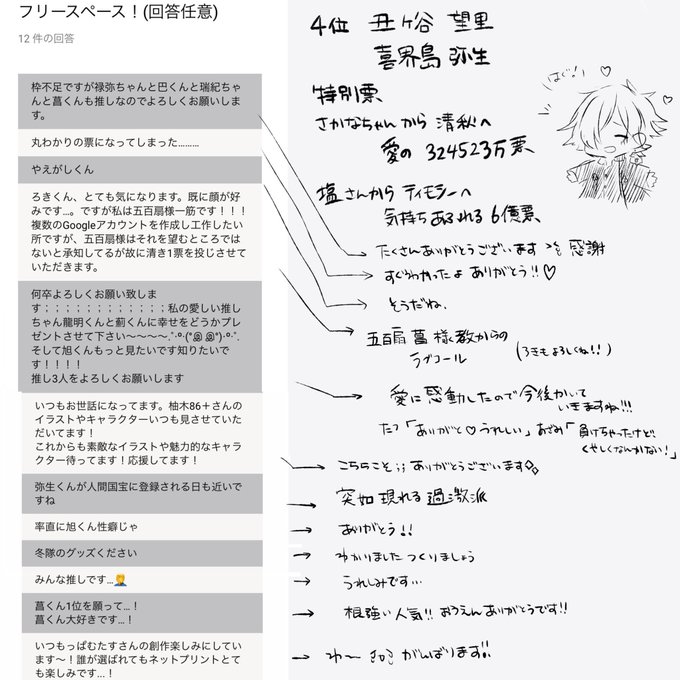 フリースペース！(回答任意)
12 件の回答
枠不足ですが禄弥ちゃんと巴くんと瑞紀ちゃ
んと菖くんも推しなのでよろしくお願いしま
す。
丸わかりの票になってしまった………
やえがしくん
ろきくん、とても気になります。既に顔が好
みです…。ですが私は五百扇様一筋です！！！
複数のGoogleアカウントを作成し工作したい
所ですが、五百扇様はそれを望むところでは
ないと承知してるが故に清き1票を投じさせて
いただきます。
何卒よろしくお願い致しま
す；；；；；；；；；；；；私の愛しい推し
ちゃん龍明くんと薊くんに幸せをどうかプレ
ゼントさせて下さい〜〜〜〜
そして旭くんもっと見たいです知りたいで
す！！！！
推し3人をよろしくお願いします
いつもお世話になってます。柚木86＋さんの
イラストやキャラクターいつも見させていた
だいてます！
これからも素敵なイラストや魅力的なキャラ
クター待ってます！応援してます！
弥生くんが人間国宝に登録される日も近いで
すね
率直に旭くん性癖じゃ
冬隊のグッズください
みんな推しです…🤦
菖くん1位を願って…！
菖くん大好きです…！
いつもっぱむたすさんの創作楽しみにしてい
ます〜！誰が選ばれてもネットプリントとて
も楽しみです…！
4位 丑ヶ谷 望里
喜界島 弥生
特別票
さかなちゃんから 清秋へ
愛の 324523万票
塩さんから ティモシーへ
気持ちあふれる 6億票
はぐ!
→ たくさんありがとうございます 感謝
→ すぐわかったよ ありがとう!!♡
→ そうだね.
→ 五百扇 菖 様教からの
ラブコール (ろきもよろしくね!!)
→ 愛に感動したので今後かいて
いきますね!!!
たつ「ありがと♡うれしい」あざみ「負けちゃったけど
くやしくなんかない!」
→ こちらこそ;; ありがとうございます
→ 突如現れる過激派
→ ありがとう!!
→ わかりました つくりましょう
→ うれしみです…
→ 根強い人気!! おうえんありがとうです!!
→ がんばります!!